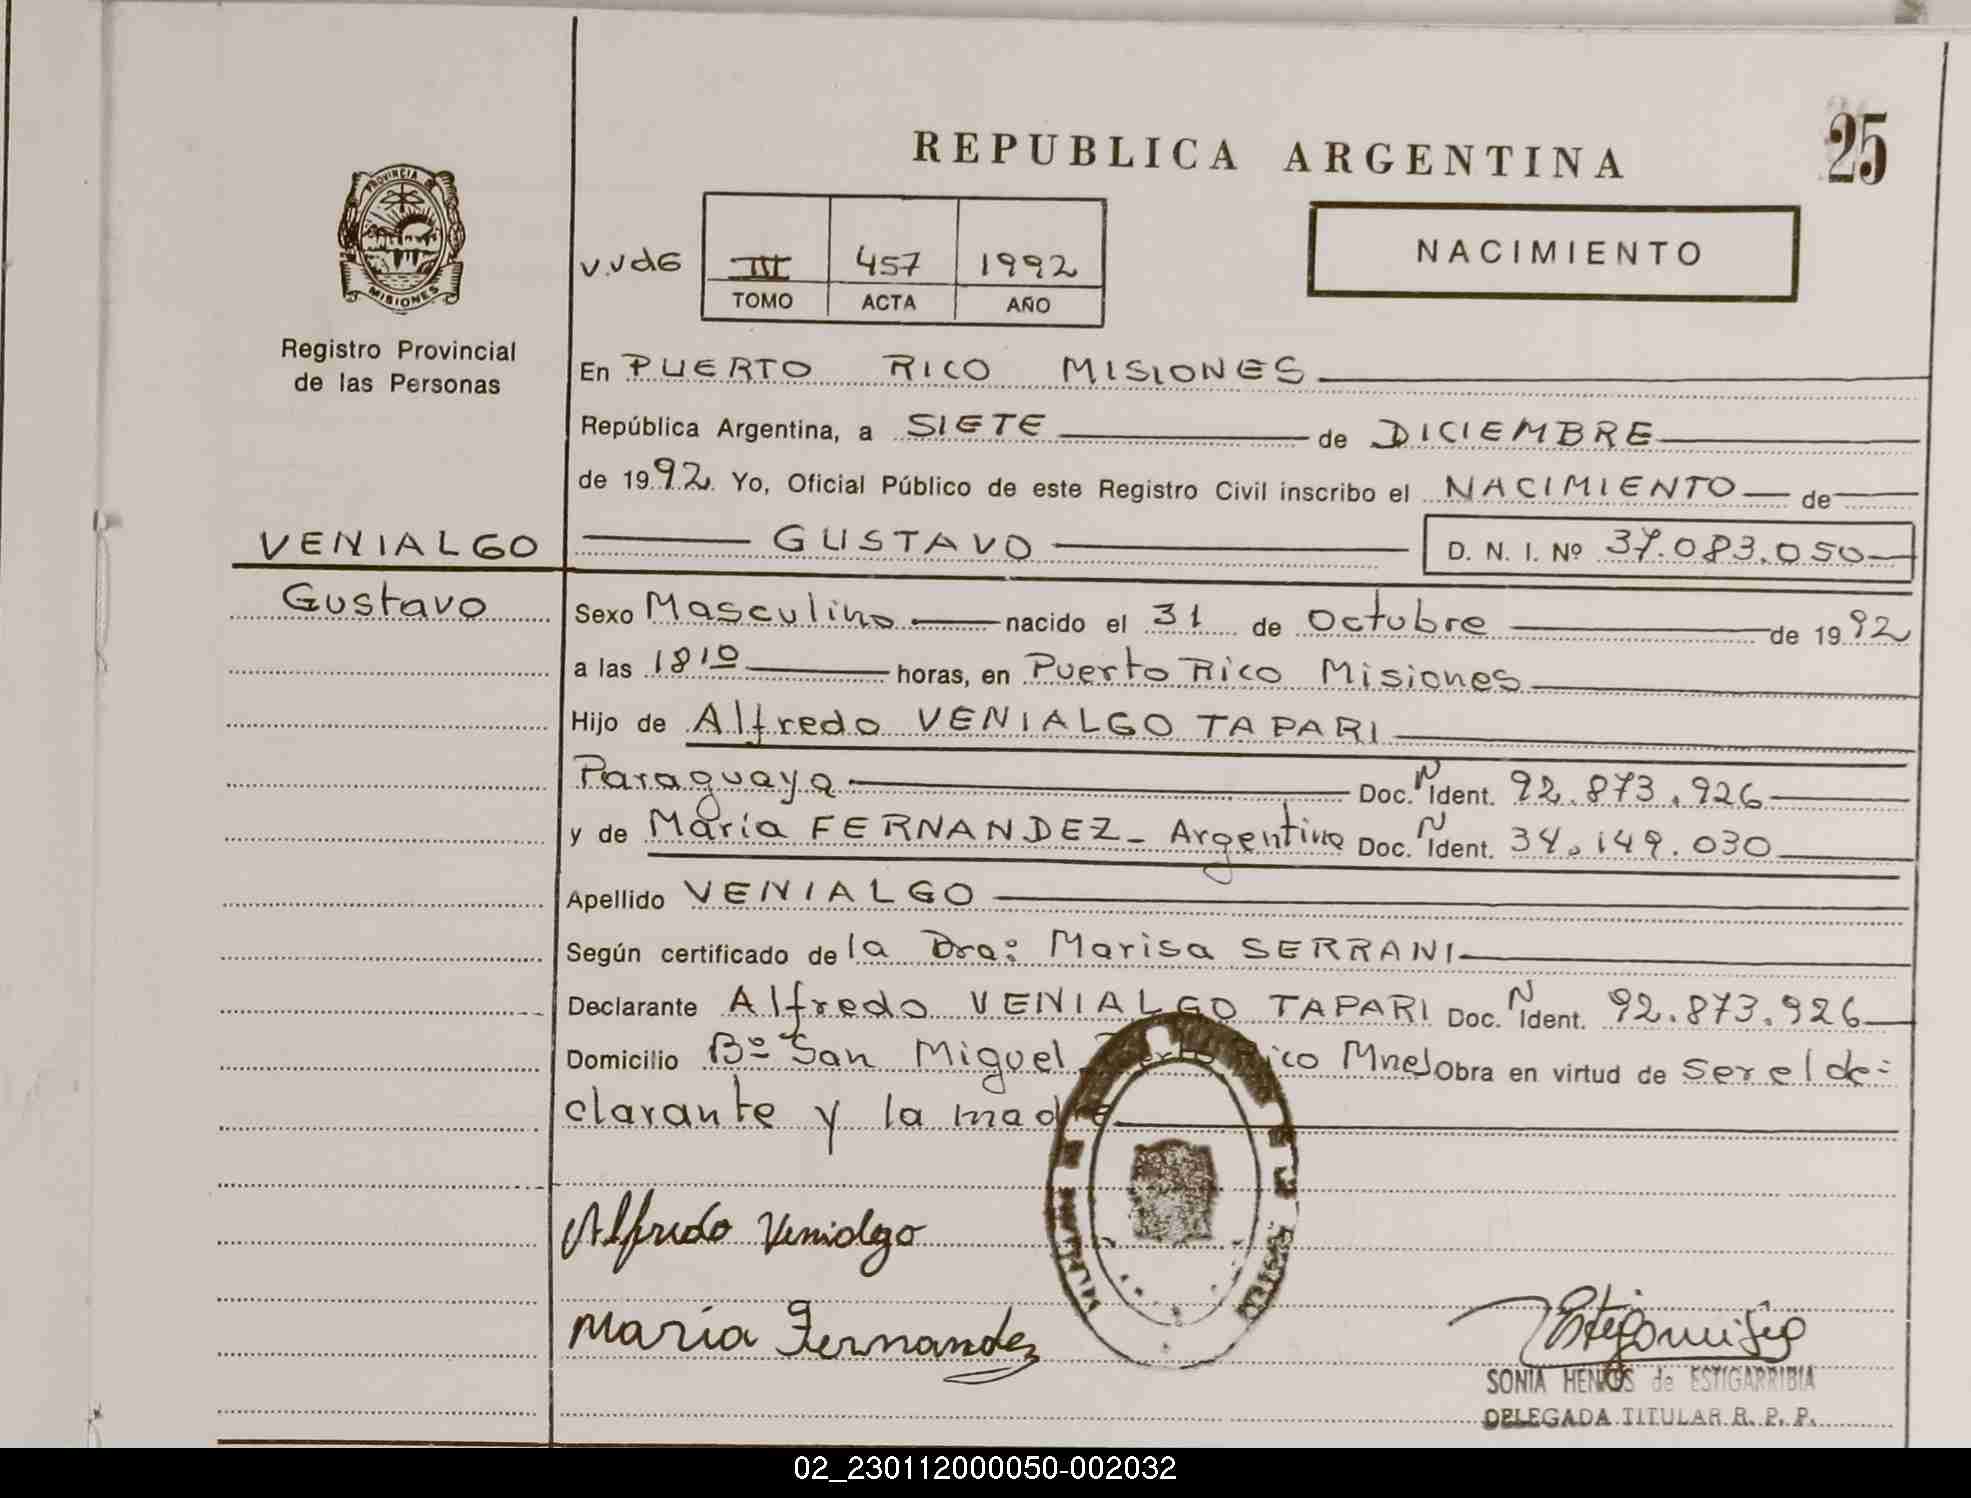 REPUBLICA ARGENTINA
25
PROVINCIA DE
MISIONES
Registro Provincial
de las Personas
v.vdG
III 457 1992
TOMO ACTA AÑO
NACIMIENTO
En PUERTO RICO MISIONES
República Argentina, a SIETE de DICIEMBRE
de 1992. Yo, Oficial Público de este Registro Civil inscribo el NACIMIENTO de
VENIALGO
GUSTAVO D. N. I. Nº 37.083.050
Gustavo
Sexo Masculino nacido el 31 de Octubre de 1992
a las 18 10 horas, en Puerto Rico Misiones
Hijo de Alfredo VENIALGO TAPARI
Paraguaya Doc. N Ident. 92.873.926
y de María FERNANDEZ - Argentina Doc. N Ident. 34.149.030
Apellido VENIALGO
Según certificado de la Dra: Marisa SERRANI
Declarante Alfredo VENIALGO TAPARI Doc. N Ident. 92.873.926
Domicilio Bº San Miguel Puerto Rico Mnes Obra en virtud de ser el de=
clarante y la madre
Alfredo Venialgo
María Fernandez
SONIA HENOS de ESTIGARRIBIA
DELEGADA TITULAR R. P. P.
02_230112000050-002032